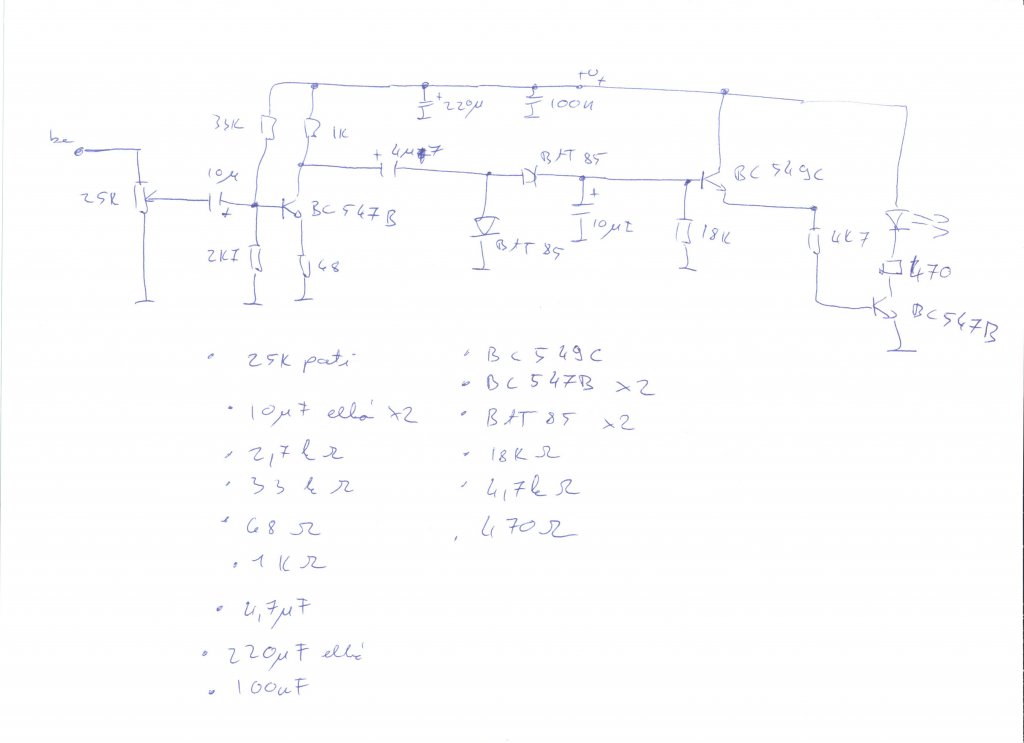 +U+
220µ
100n
33K
1K
be
4µ7
BAT 85
BC 549C
10µ
25K
BC 547B
10µF
18K
4K7
BAT 85
2K7
68
470
BC 547B
25K poti
10µF elkó x2
2,7k Ω
33 k Ω
68 Ω
1K Ω
4,7µF
220µF elkó
100nF
BC 549C
BC 547B x2
BAT 85 x2
18K Ω
4,7k Ω
470Ω